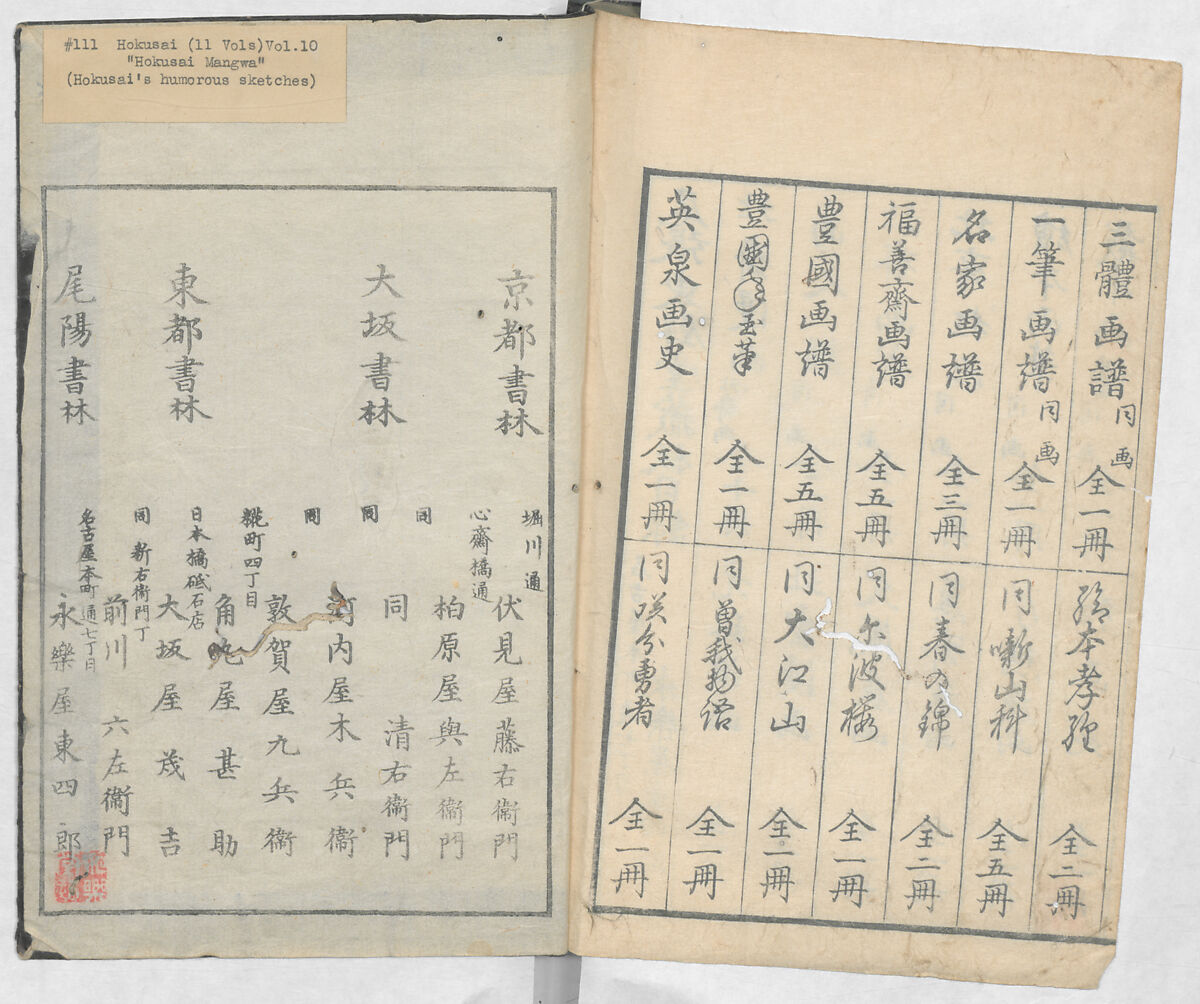 #111 Hokusai (11 Vols)Vol.10
"Hokusai Mangwa"
(Hokusai's humorous sketches)
三體画譜 同画 全一冊
一筆画譜 同画 全一冊
名家画譜 全三冊
福善齋画譜 全五冊
豊國画譜 全五冊
豊國年玉筆 全一冊
英泉画史 全一冊
繪本孝經 全二冊
同 噺山科 全五冊
同 春の錦 全二冊
同 尓波桜 全一冊
同 大江山 全一冊
同 曽我物語 全一冊
同 咲分勇者 全一冊
京都書林 堀川通 伏見屋藤右衞門
大坂書林 心齋橋通 柏原屋與左衞門
同 同 清右衞門
同 河内屋木兵衞
同 敦賀屋九兵衞
東都書林 糀町四丁目 角丸屋甚助
日本橋砥石店 大坂屋茂吉
同 新右衞門丁 前川六左衞門
尾陽書林 名古屋本町通七丁目 永樂屋東四郎